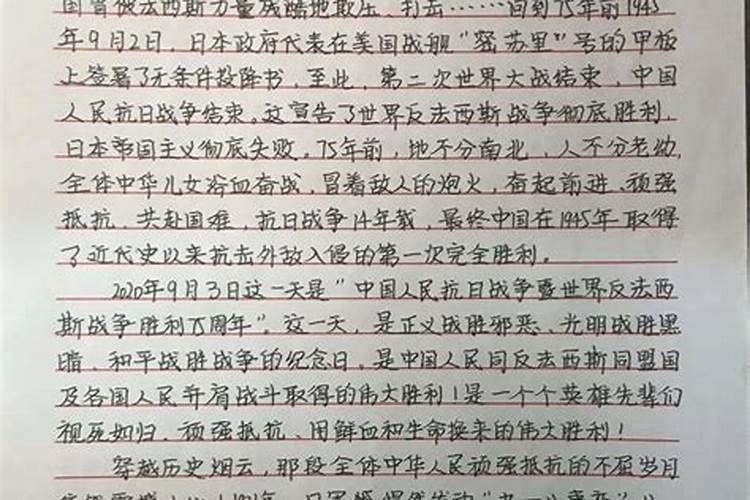 国首被法西斯力量残酷地欺压、打击……回到75年前1945
年9月2日，日本政府代表在美国战舰“密苏里”号的甲板
上签署了无条件投降书，至此，第二次世界大战结束，中国
人民抗日战争结束。这宣告了世界反法西斯战争彻底胜利，
日本帝国主义彻底失败。75年前，地不分南北，人不分老幼，
全体中华儿女浴血奋战，冒着敌人的炮火，奋起前进、顽强
抵抗、共赴国难，抗日战争14年载，最终中国在1945年取得
了近代史以来抗击外敌入侵的第一次完全胜利。
2020年9月3日这一天是“中国人民抗日战争暨世界反法西
斯战争胜利75周年”。这一天，是正义战胜邪恶、光明战胜黑
暗、和平战胜战争的纪念日，是中国人民同反法西斯同盟国
及各国人民并肩战斗取得的伟大胜利！是一个个英雄先辈们
视死如归、顽强抵抗、用鲜血和生命换来的伟大胜利！
穿越历史烟云，那段全体中华人民顽强抵抗的不屈岁月